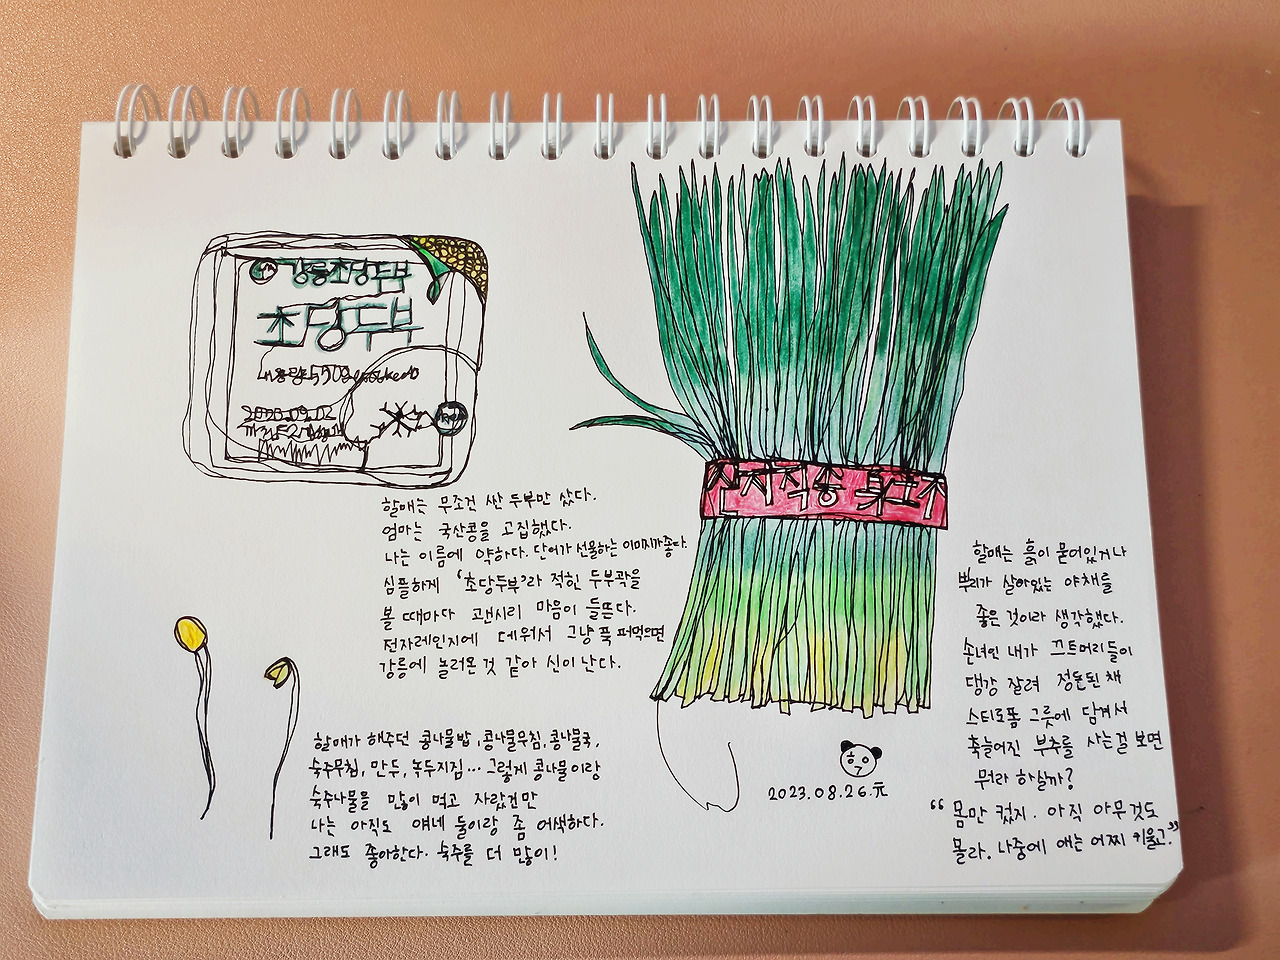 강릉초당두부
초당두부
2023.09.02
할매는 무조건 싼 두부만 샀다.
엄마는 국산콩을 고집했다.
나는 이름에 약하다. 단어가 선물하는 이미지가 좋다.
심플하게 '초당두부'라 적힌 두부곽을
볼 때마다 괜시리 마음이 들뜬다.
전자레인지에 데워서 그냥 푹 퍼먹으면
강릉에 놀러온 것 같아 신이 난다.
할매가 해주던 콩나물밥, 콩나물무침, 콩나물국,
숙주무침, 만두, 녹두지짐... 그렇게 콩나물이랑
숙주나물을 많이 먹고 자랐건만
나는 아직도 얘네 둘이랑 좀 어색하다.
그래도 좋아한다. 숙주를 더 많이!
산지직송 부추
할매는 흙이 묻어있거나
뿌리가 살아있는 야채를
좋은 것이라 생각했다.
손녀인 내가 끄트머리들이
댕강 잘려 정돈된 채
스티로폼 그릇에 담겨서
축늘어진 부추를 사는걸 보면
뭐라 하실까?
“몸만 컸지. 아직 아무것도
몰라. 나중에 애는 어찌 키울고.”
2023.08.26.元